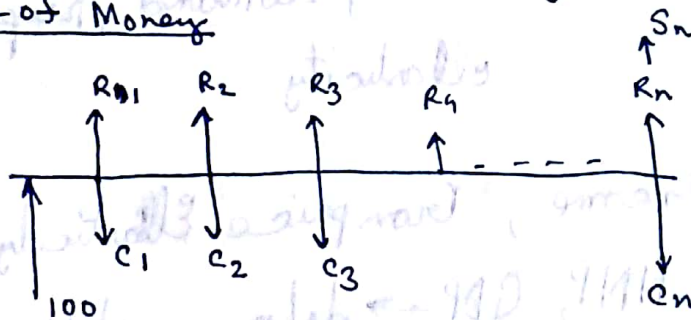 -of Money
Sn
R1 R2 R3 R4 Rn
C1 C2 C3 Cn
100